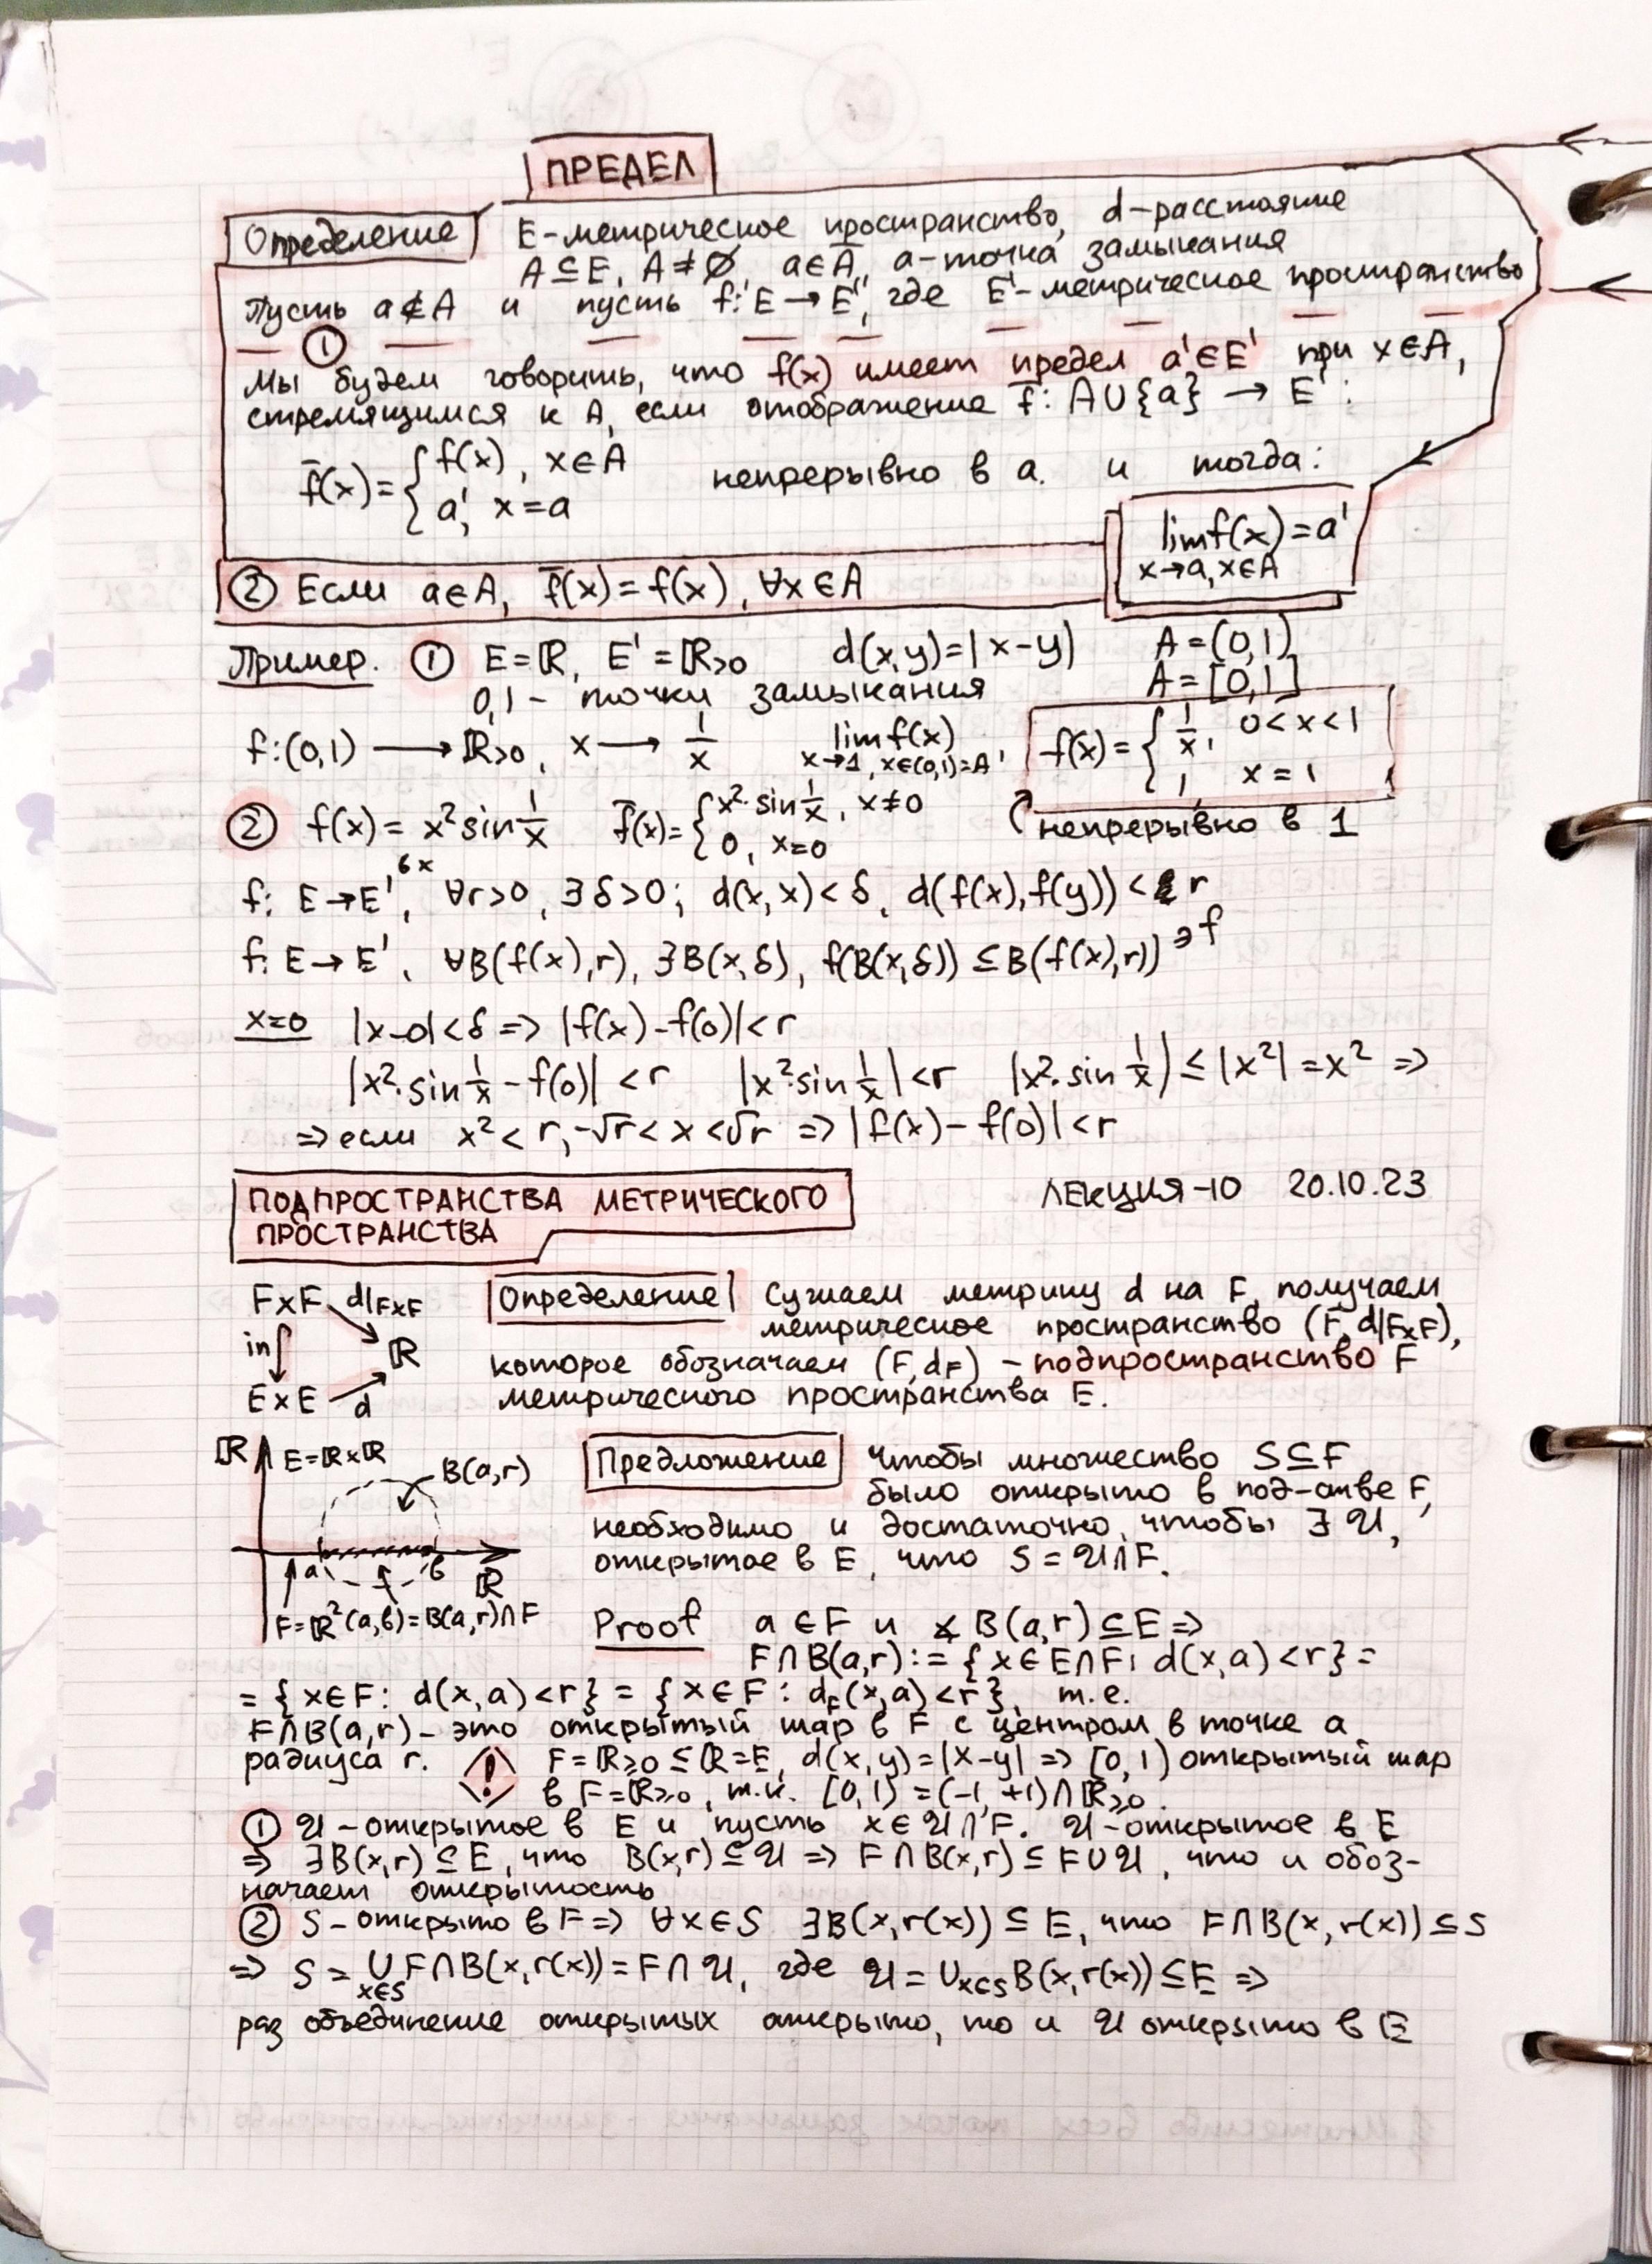 ПРЕДЕЛ
Определение E-метрическое пространство, d-расстояние
A⊆E, A≠∅, a∈A̅, a-точка замыкания
Пусть a∉A и пусть f: E→E', где E'-метрическое пространство
① Мы будем говорить, что f(x) имеет предел a'∈E' при x∈A,
стремящимся к A, если отображение f̅: A∪{a} → E':
f̅(x)={ f(x), x∈A
a', x=a
непрерывно в a. и тогда:
lim f(x)=a'
x→a, x∈A
② Если a∈A, f̅(x)=f(x), ∀x∈A
Пример. ① E=ℝ, E'=ℝ>0 d(x,y)=|x-y| A=(0,1)
0,1- точки замыкания A̅=[0,1]
f:(0,1) → ℝ>0, x → 1/x lim f(x)
x→1, x∈(0,1)=A,
f(x)={ 1/x, 0<x<1
1, x=1
непрерывно в 1
② f(x)= x² sin 1/x f̅(x)={ x²·sin 1/x, x≠0
0, x=0
f: E→E', в x ∀r>0, ∃δ>0; d(x,x)<δ, d(f(x),f(y))< r
f: E→E', ∀B(f(x),r), ∃B(x,δ), f(B(x,δ)) ⊆B(f(x),r)) ∋f
x=0 |x-0|<δ => |f(x)-f(0)|<r
|x²·sin 1/x - f(0)| <r |x²·sin 1/x|<r |x²·sin 1/x| ≤ |x²|=x² =>
=> если x²<r, -√r<x<√r => |f(x)-f(0)|<r
ПОДПРОСТРАНСТВА МЕТРИЧЕСКОГО
ПРОСТРАНСТВА
ЛЕКЦИЯ-10 20.10.23
F×F d|F×F
in ℝ
E×E d
Определение Сужаем метрику d на F, получаем
метрическое пространство (F, d|F×F),
которое обозначаем (F,dF) - подпространство F
метрического пространства E.
ℝ E=ℝ×ℝ B(a,r)
a в ℝ
F=ℝ² (a,в)=B(a,r)∩F
Предложение Чтобы множество S⊆F
было открыто в под-стве F,
необходимо и достаточно, чтобы ∃ 𝒰,
открытое в E, что S=𝒰∩F.
Proof a∈F и ∡ B(a,r)⊆E =>
F∩B(a,r):={x∈E∩F: d(x,a)<r}=
= {x∈F: d(x,a)<r} = {x∈F: dF(x,a)<r}, т.е.
F∩B(a,r) - это открытый шар в F с центром в точке a
радиуса r. ! F=ℝ≥0⊆ℝ=E, d(x,y)=|x-y| => [0,1) открытый шар
в F=ℝ≥0, т.к. [0,1)=(-1,+1)∩ℝ≥0.
① 𝒰-открытое в E и пусть x∈𝒰∩F. 𝒰-открытое в E
=> ∃B(x,r)⊆E, что B(x,r)⊆𝒰 => F∩B(x,r)⊆F∪𝒰, что и обоз-
начает открытость
② S-открыто в F => ∀x∈S ∃B(x,r(x))⊆E, что F∩B(x,r(x))⊆S
=> S = ∪ F∩B(x,r(x))=F∩𝒰, где 𝒰=∪x∈S B(x,r(x))⊆E =>
x∈S
раз объединение открытых открыто, то и 𝒰 открыто в E